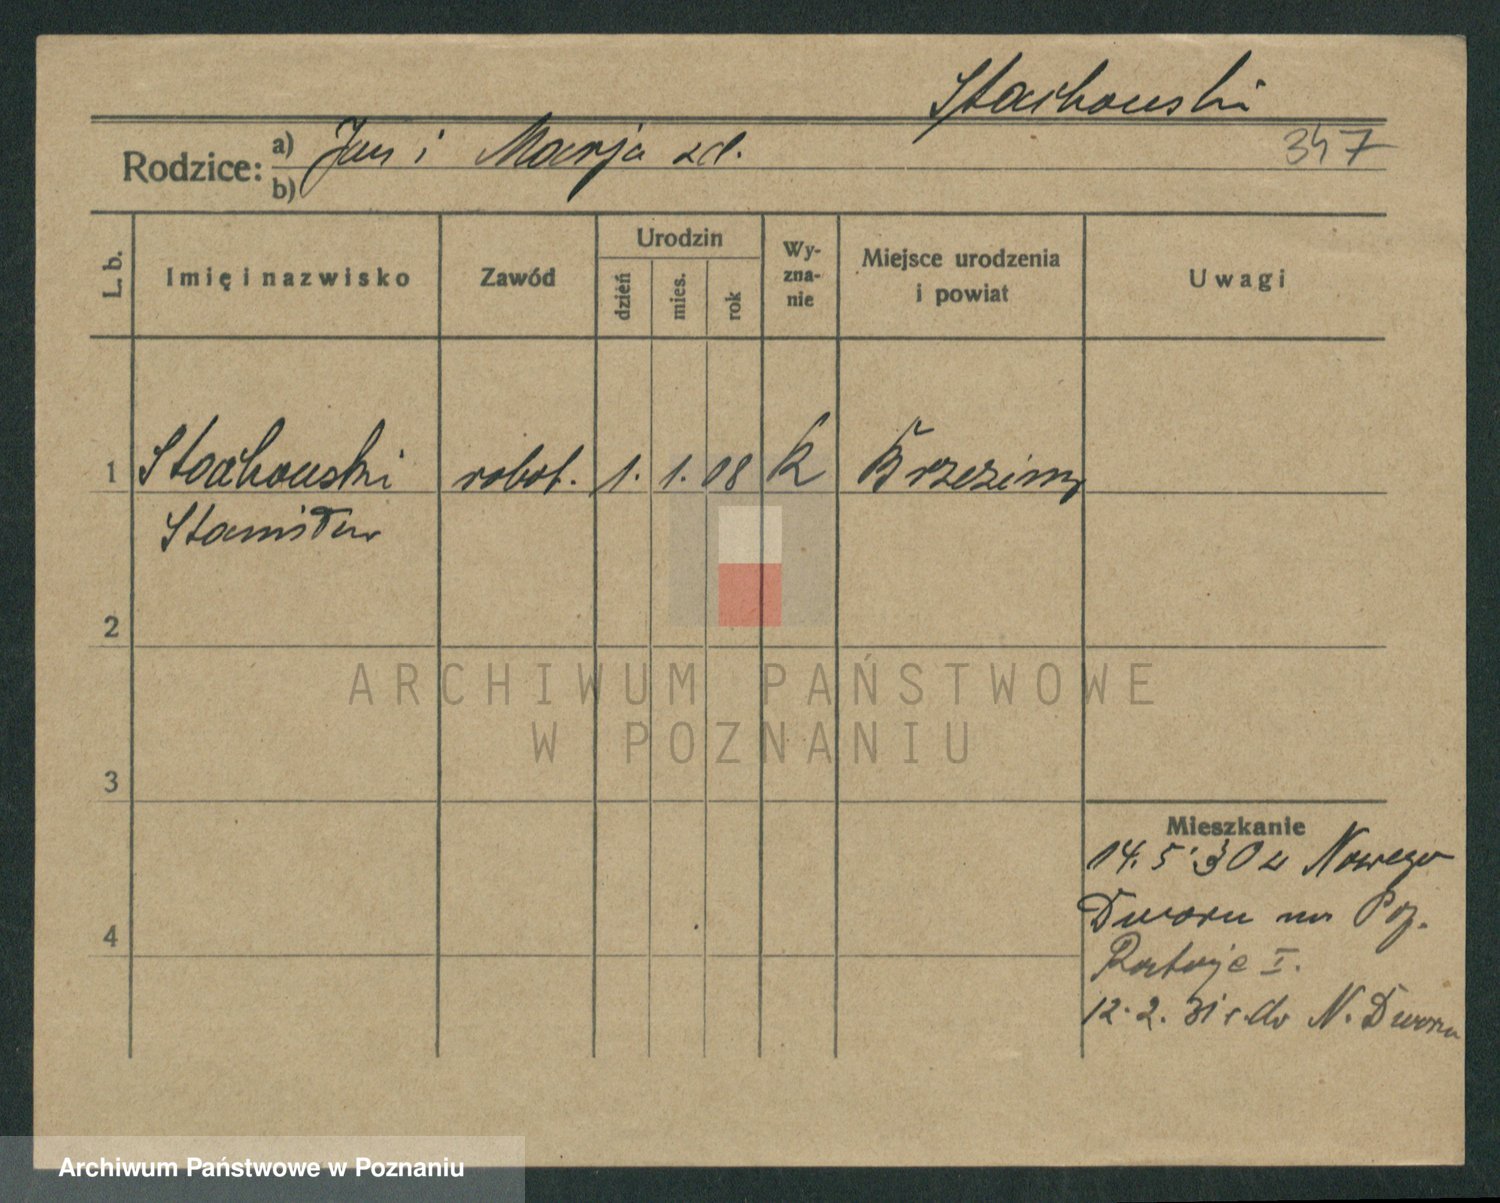 Stachowski
347
Rodzice: a) Jan i Marja zd.
b)
L. b.
Imię i nazwisko
Zawód
Urodzin
dzień
mies.
rok
Wy-
zna-
nie
Miejsce urodzenia
i powiat
Uwagi
1 Stachowski robot. 1. 1. 08 K Brzeziny
Stanisław
2
ARCHIWUM PAŃSTWOWE
W POZNANIU
3
Mieszkanie
14. 5. 30 z Nowego
Dworu na
4
Rataje I.
12. 2. 31 r. do N. Dworu
Archiwum Państwowe w Poznaniu